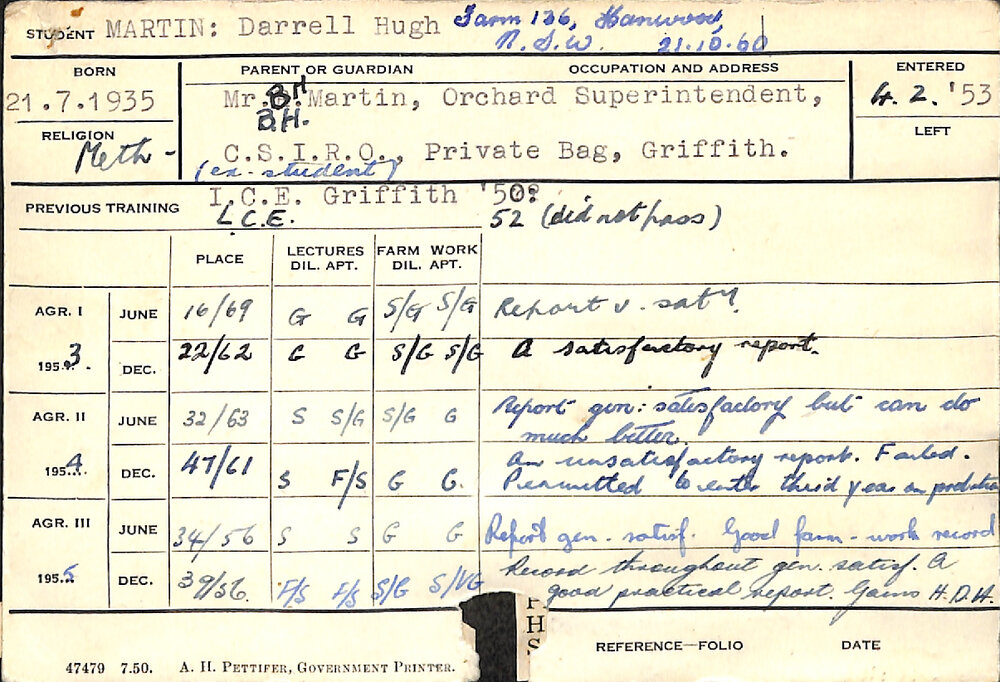 STUDENT MARTIN: Darrell Hugh Farm 136, Hanwood,
N.S.W. 21.10.60
BORN PARENT OR GUARDIAN OCCUPATION AND ADDRESS ENTERED
21.7.1935 Mr. B.H. Martin, Orchard Superintendent, 4.2.'53
B.H.
RELIGION LEFT
Meth- C.S.I.R.O., Private Bag, Griffith.
(ex-student)
PREVIOUS TRAINING I.C.E. Griffith '50?
L.C.E. 52 (did not pass)
PLACE LECTURES FARM WORK
DIL. APT. DIL. APT.
AGR. I JUNE 16/69 G G S/G S/G Report v. saty.
1953. DEC. 22/62 G G S/G S/G A satisfactory report.
AGR. II JUNE 32/63 S S/G S/G G Report gen: satisfactory but can do
much better.
1954. DEC. 47/61 S F/S G G. An unsatisfactory report. Failed.
Permitted to enter third year on probation
AGR. III JUNE 34/56 S S G G Report gen. satisf. Good farm-work record
1955. DEC. 39/56. F/S F/S S/G S/VG Record throughout gen. satisf. A
good practical report. Gains H.D.A.
P
H
S
REFERENCE—FOLIO DATE
47479 7.50. A. H. PETTIFER, GOVERNMENT PRINTER.